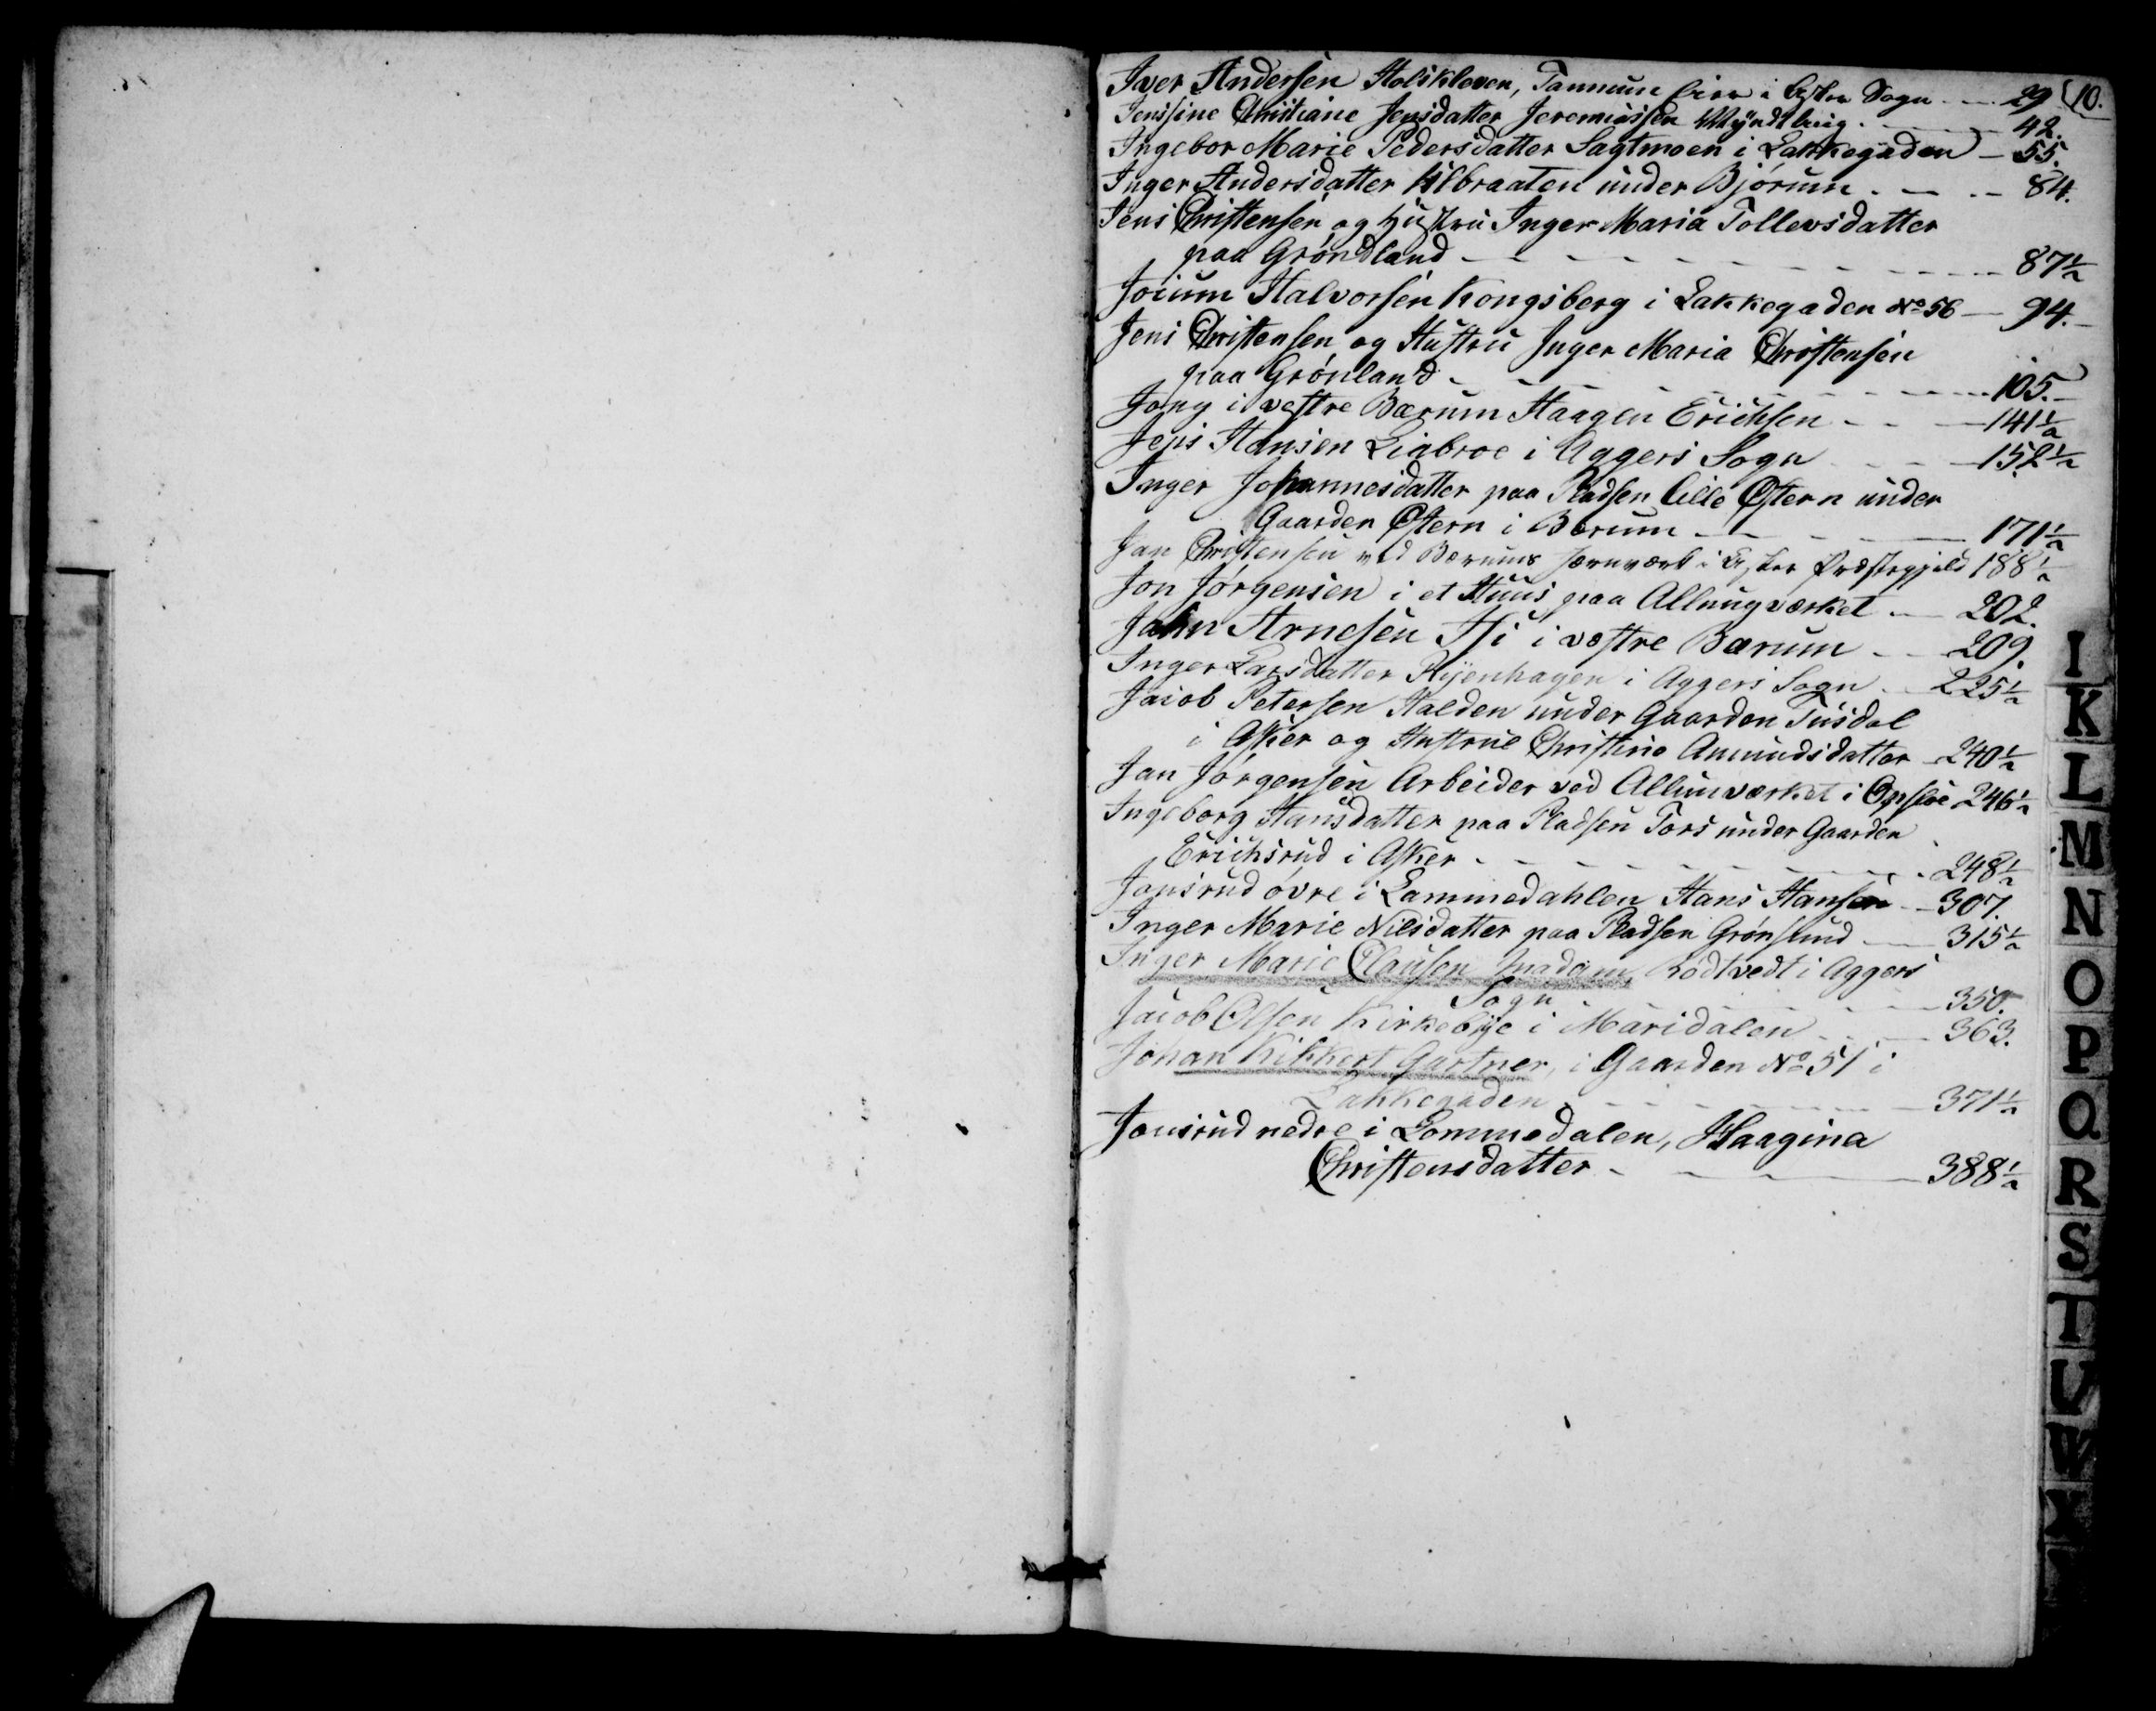 Iver Andersen Holskleven, Tannum eier i Asker Sogn - - 29 (10.
Jensine Christiane Jensdatter Jeremiassen Myndtling - - 42.
Ingebor Marie Pedersdatter Sagtmoen i Lakkegaden - 55.
Inger Andersdatter Kilbraaten under Bjørum - - - 84.
Jens Christensen og Hustru Inger Maria Tollevsdatter
paa Grøndland - - - - - - 87½
Joium Halvorsen Kongsberg i Lakkegaden No 56 - 94.-
Jens Christensen og Hustru Inger Maria Christensen
paa Grønland - - - - - 105.-
Jong i vestre Bærum Haagen Erichsen - - - 141½
Jens Hansen Liabroe i Aggers Sogn - - - 152½
Inger Johannesdatter paa Pladsen lille Østern under
Gaarden Østern i Bærum - - - - 171½
Jan Christensen ved Bærums Jernværk i Asker Præstegjeld 188½
Jon Jørgensen i et Huus paa Allungværket - - 202.
Jahn Arnesen Hi i vestre Bærum - - 209.
Inger Larsdatter Ryenhagen i Aggers Sogn - - 225½
Jacob Petersen Halden under Gaarden Tusdal
i Asker og Hustrue Christine Amundsdatter - 240½
Jan Jørgensen Arbeider ved Allunværket i Opsloe 246½
Ingeborg Hansdatter paa Pladsen Tors under Gaarden
Erichsrud i Asker - - - - - - 248½
Jonsrud øvre i Lammedahlen Hans Hansen - 307.
Inger Marie Nilsdatter paa Pladsen Grønslund - 315½
Inger Marie Clausen Madam, Rødtvedt i Aggers
Sogn - - - - - 350.
Jacob Olsen Kirkebye i Maridalen - - - 363.
Johan Kikkert Gartner, i Gaarden No 51 i
Lakkegaden - - - - - 371½
Jonsrud nedre i Lommedalen, Haagina
Christensdatter - - - - 388½
I
K
L
M
N
O
P
Q
R
S
T
U
W
X